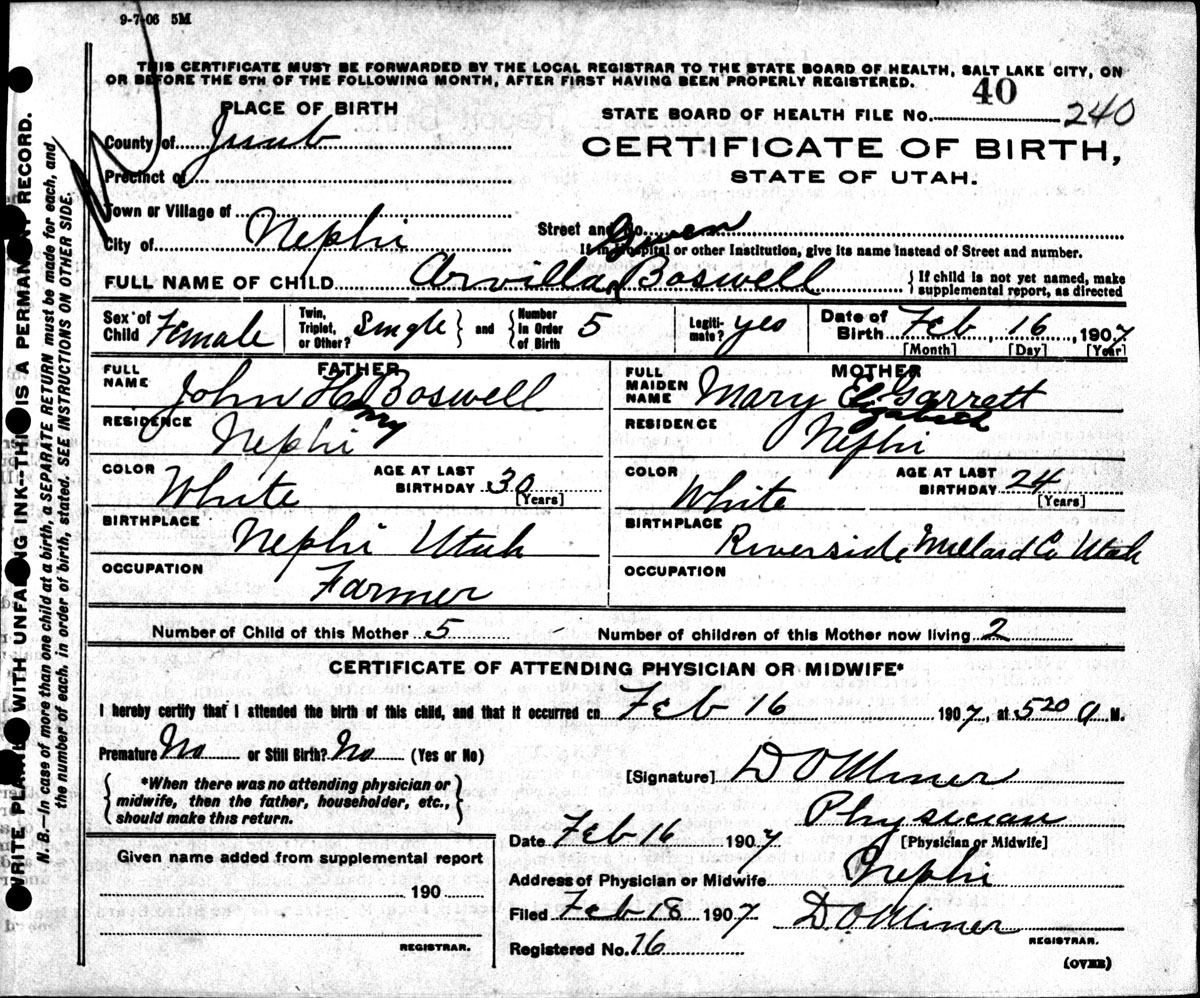 9-7-06 5M
THIS CERTIFICATE MUST BE FORWARDED BY THE LOCAL REGISTRAR TO THE STATE BOARD OF HEALTH, SALT LAKE CITY, ON
OR BEFORE THE 5TH OF THE FOLLOWING MONTH, AFTER FIRST HAVING BEEN PROPERLY REGISTERED.
PLACE OF BIRTH
40
STATE BOARD OF HEALTH FILE No. 240
County of Juab
CERTIFICATE OF BIRTH,
Precinct of
STATE OF UTAH.
Town or Village of
City of Nephi
Street and No.
If in Hospital or other Institution, give its name instead of Street and number.
Gwen
FULL NAME OF CHILD Arvilla Boswell {If child is not yet named, make supplemental report, as directed
Sex of Child Female Twin, Triplet, or Other? Single } and { Number in Order of Birth 5 Legitimate? yes Date of Birth Feb 16, 1907
[Month] [Day] [Year]
FATHER
FULL NAME John H. Boswell
Henry
RESIDENCE Nephi
COLOR White AGE AT LAST BIRTHDAY 30 [Years]
BIRTHPLACE Nephi Utah
OCCUPATION Farmer
MOTHER
FULL MAIDEN NAME Mary E. Garrett
Elizabeth
RESIDENCE Nephi
COLOR White AGE AT LAST BIRTHDAY 24 [Years]
BIRTHPLACE Riverside Millard Co Utah
OCCUPATION
Number of Child of this Mother 5 Number of children of this Mother now living 2
CERTIFICATE OF ATTENDING PHYSICIAN OR MIDWIFE*
I hereby certify that I attended the birth of this child, and that it occurred on Feb 16 1907, at 5 20 a M.
Premature No or Still Birth? No (Yes or No)
{*When there was no attending physician or
midwife, then the father, householder, etc.,
should make this return.}
[Signature] D O Miner
Physician
Date Feb 16 1907 [Physician or Midwife]
Given name added from supplemental report
190
REGISTRAR.
Address of Physician or Midwife Nephi
Filed Feb 18 1907 D. O. Miner
REGISTRAR.
Registered No. 16
(OVER)
WRITE PLAINLY WITH UNFADING INK--THIS IS A PERMANENT RECORD.
N. B.--In case of more than one child at a birth, a SEPARATE RETURN must be made for each, and
the number of each, in order of birth, stated. SEE INSTRUCTIONS ON OTHER SIDE.